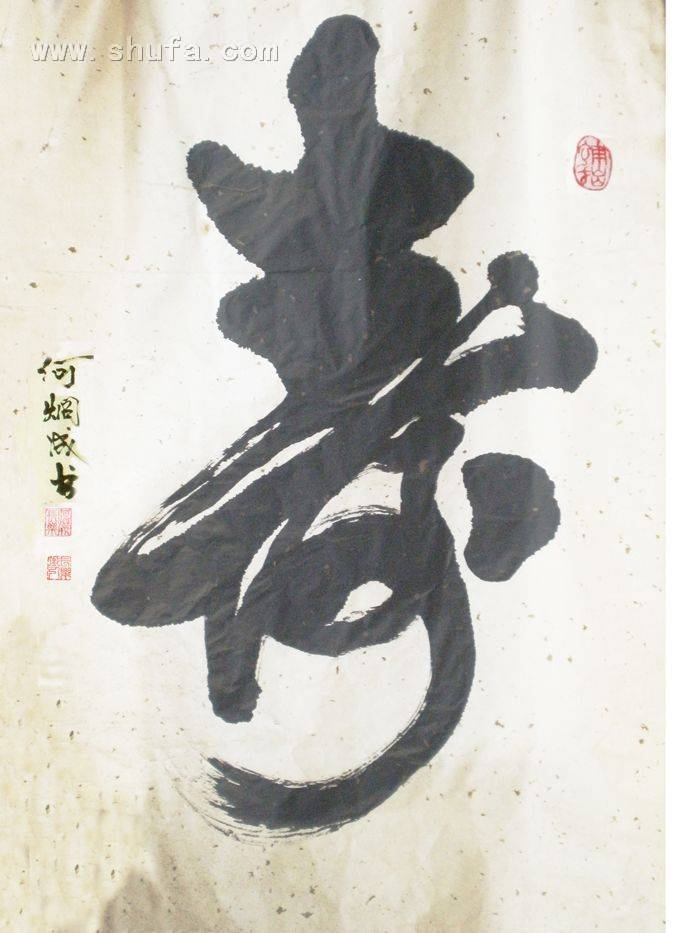 www.shufa.com
寿
何炯成书